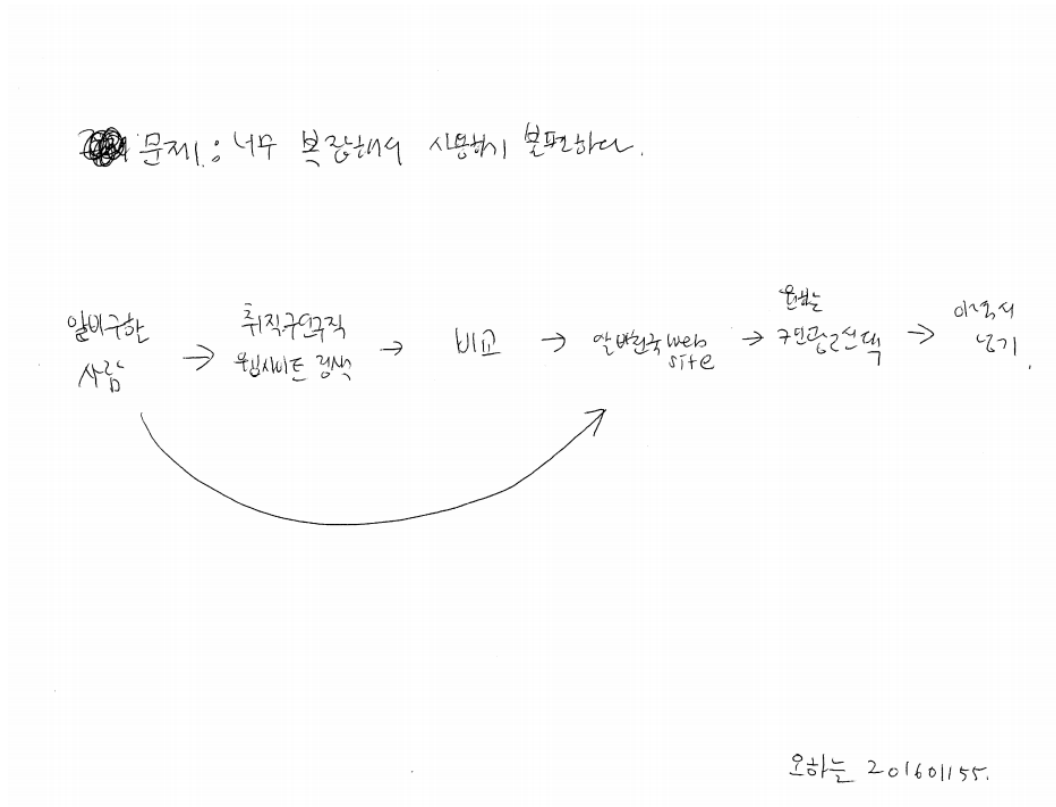 문제: 너무 복잡해서 사용하기 불편하다.
알바구한
사람
→
취직구인구직
웹사이트 검색
→
비교
→
알바천국 web
site
→
원하는
구인광고선택
→
이력서
넣기.
오하는 201601155.